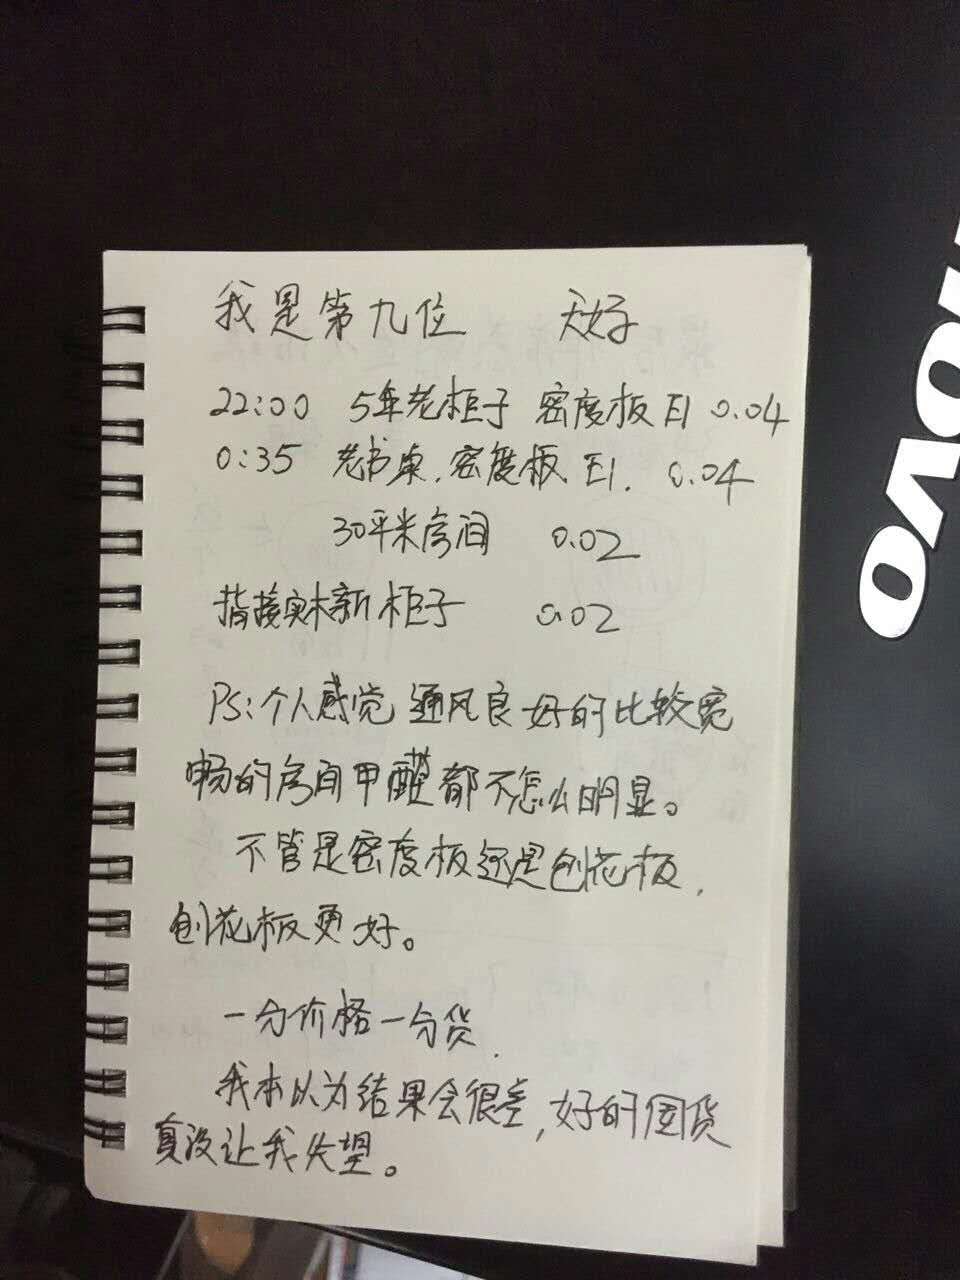 我是第九位 天好
22:00 5年老柜子 密度板E1 0.04
0:35 老书桌.密度板 E1. 0.04
30平米房间 0.02
指接实木新柜子 0.02
PS:个人感觉 通风良好的比较宽
畅的房间甲醛都不怎么明显。
不管是密度板还是刨花板.
刨花板更好。
一分价格一分货.
我本以为结果会很差,好的国货
真没让我失望。
novo